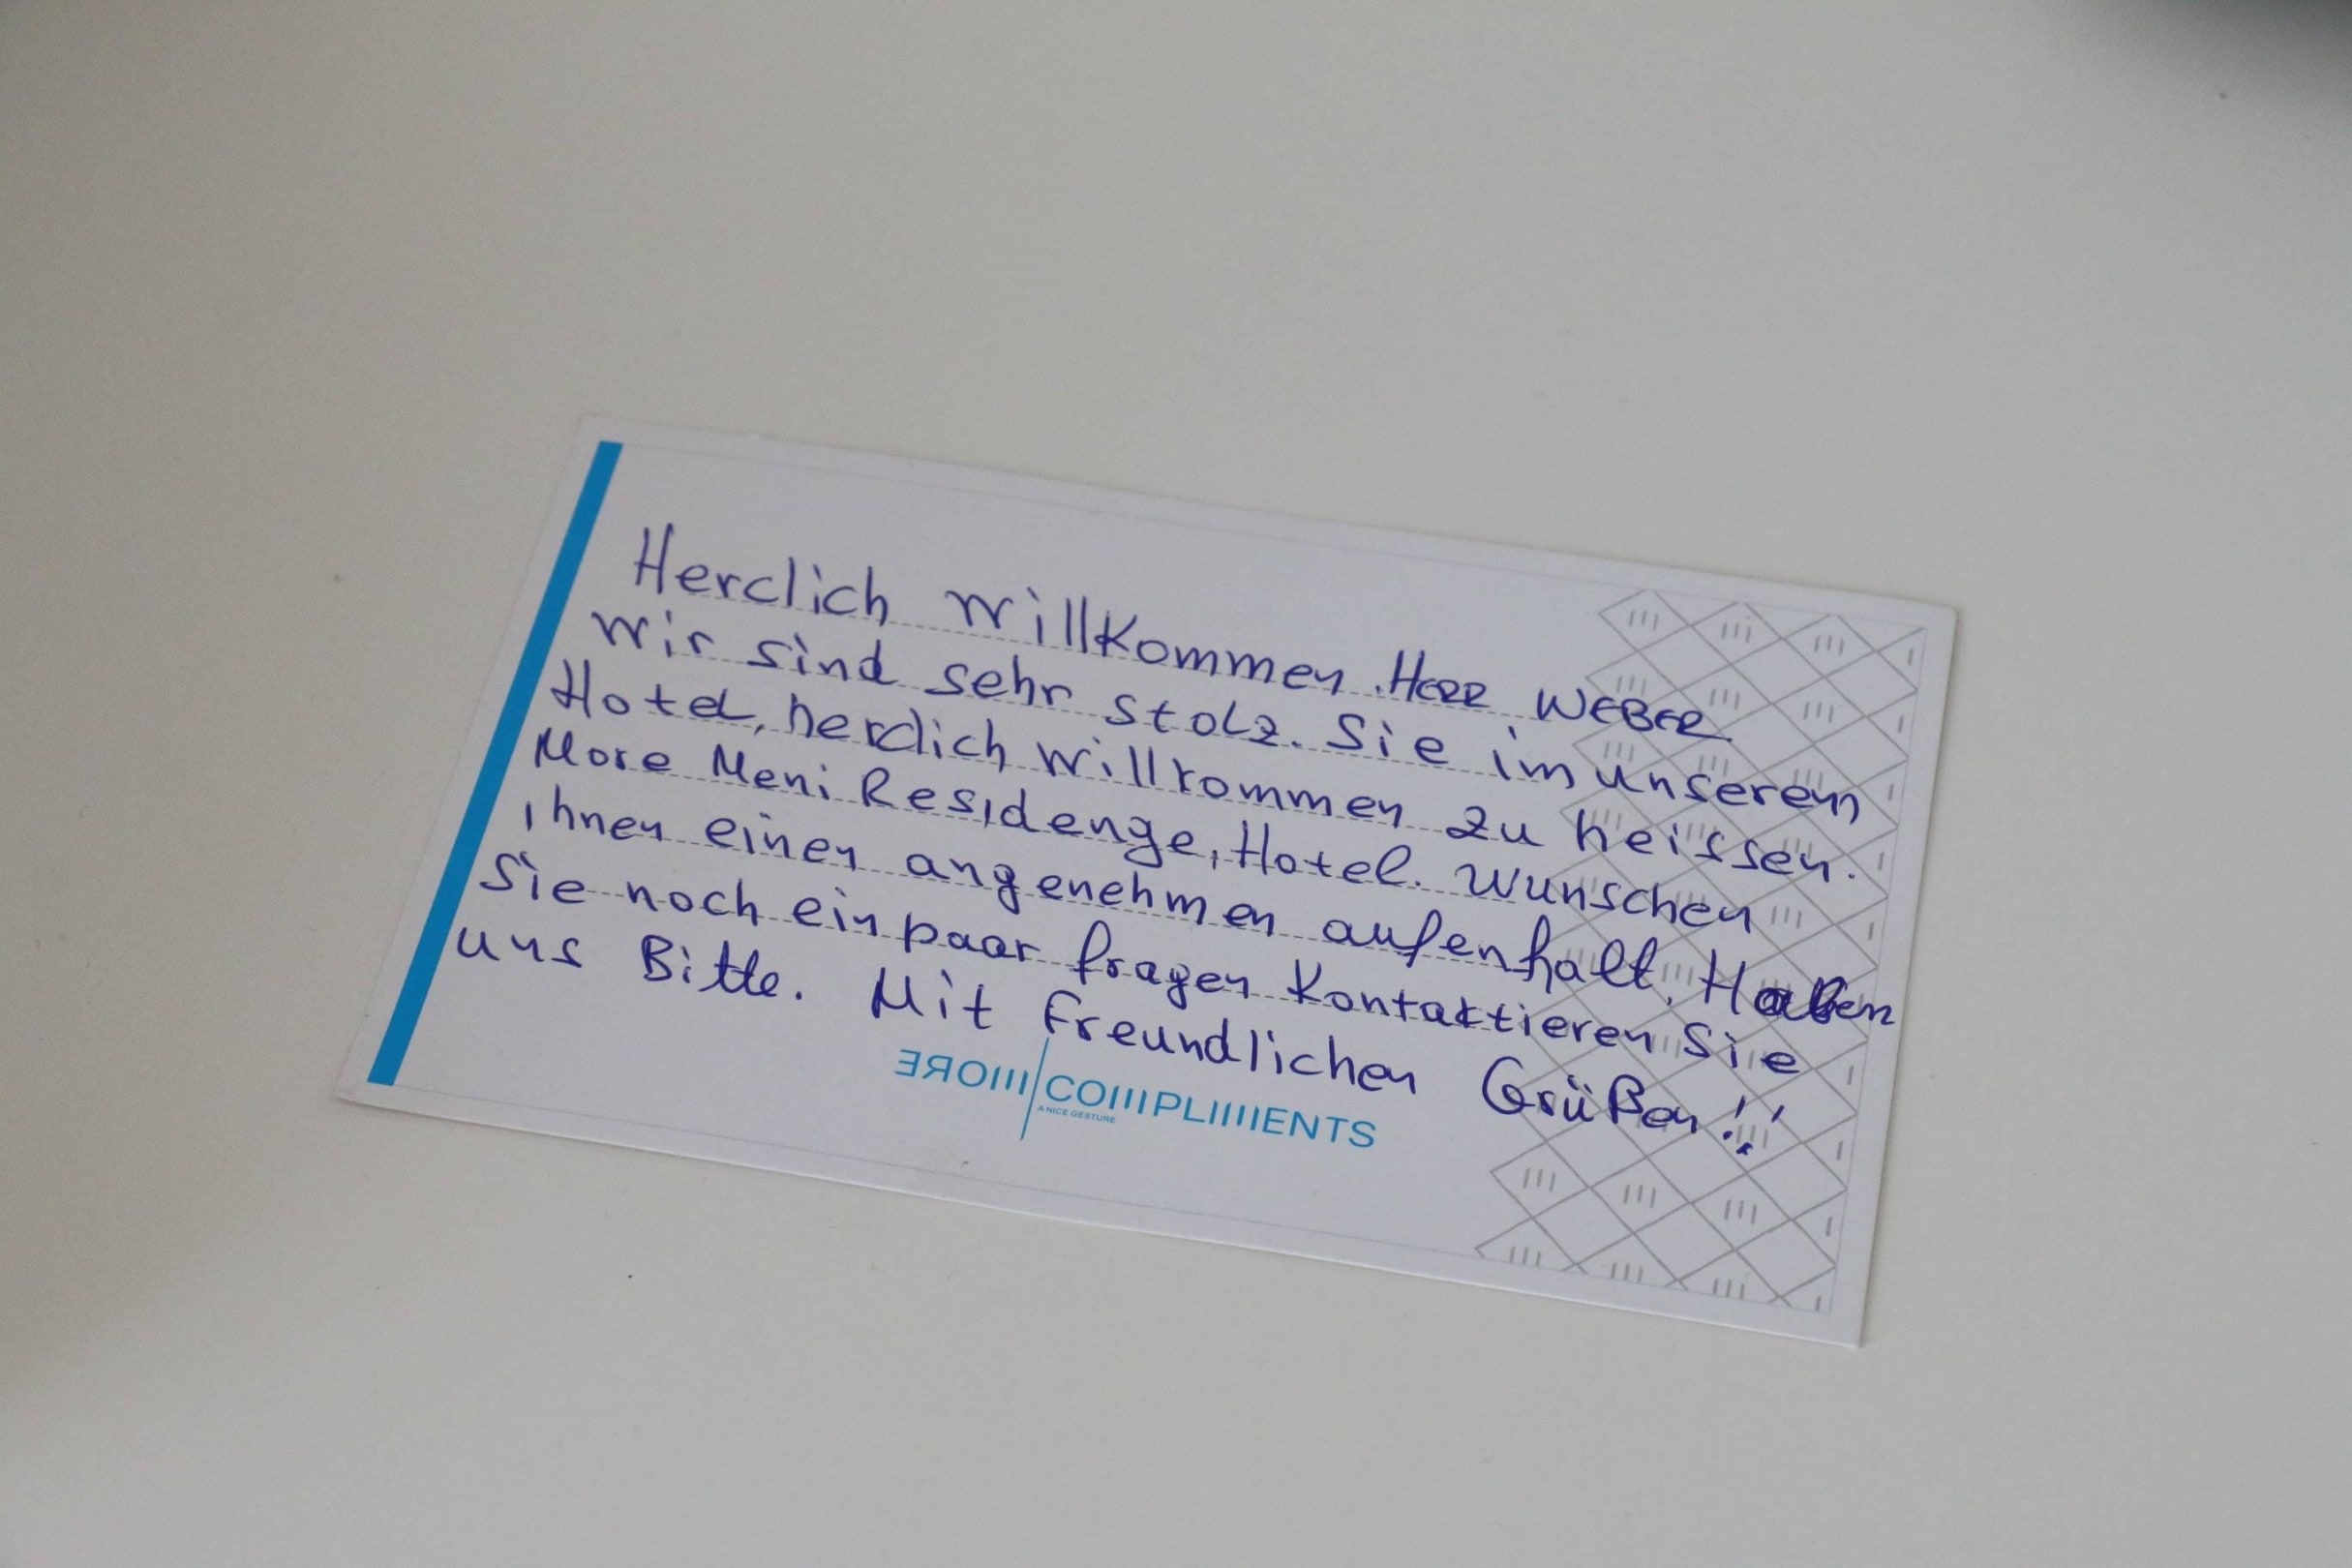 Herclich willkommen Herr WEBER.
Wir sind sehr stolz. Sie im unserem
Hotel, herclich willkommen zu heissen.
More Meni Residenge, Hotel. Wunschen
ihnen einen angenehmen aufenhalt. Haben
Sie noch ein paar fragen Kontaktieren Sie
uns Bitte. Mit freundlichen Grüßen!!
MORE COMPLIMENTS
A NICE GESTURE